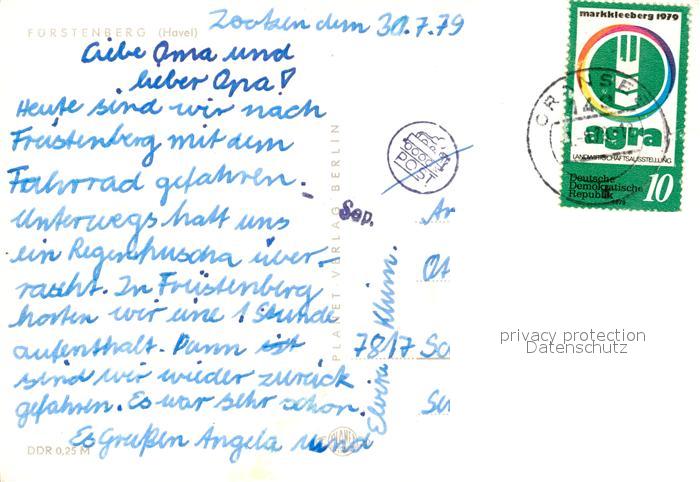 Zootzen dem 30.7.79
FÜRSTENBERG (Havel)
Liebe Oma und
lieber Opa!
Heute sind wir nach
Früstenberg mit dem
Fahrrad gefahren.
Unterwegs hatt uns
ein Regenhuscha über-
rascht. In Früstenberg
hatten wir eine 1 Stunde
aufenthalt. Dann ist
sind wir wieder zurück
gefahren. Es war sehr schön.
Es Grüßen Angela und
Elvira Klum.
DDR 0,25 M
PLANET VERLAG BERLIN
POST
Sep.
An
7817 So
markkleeberg 1979
agra
LANDWIRTSCHAFTSAUSSTELLUNG
Deutsche
Demokratische
Republik
10
1979
privacy protection
Datenschutz